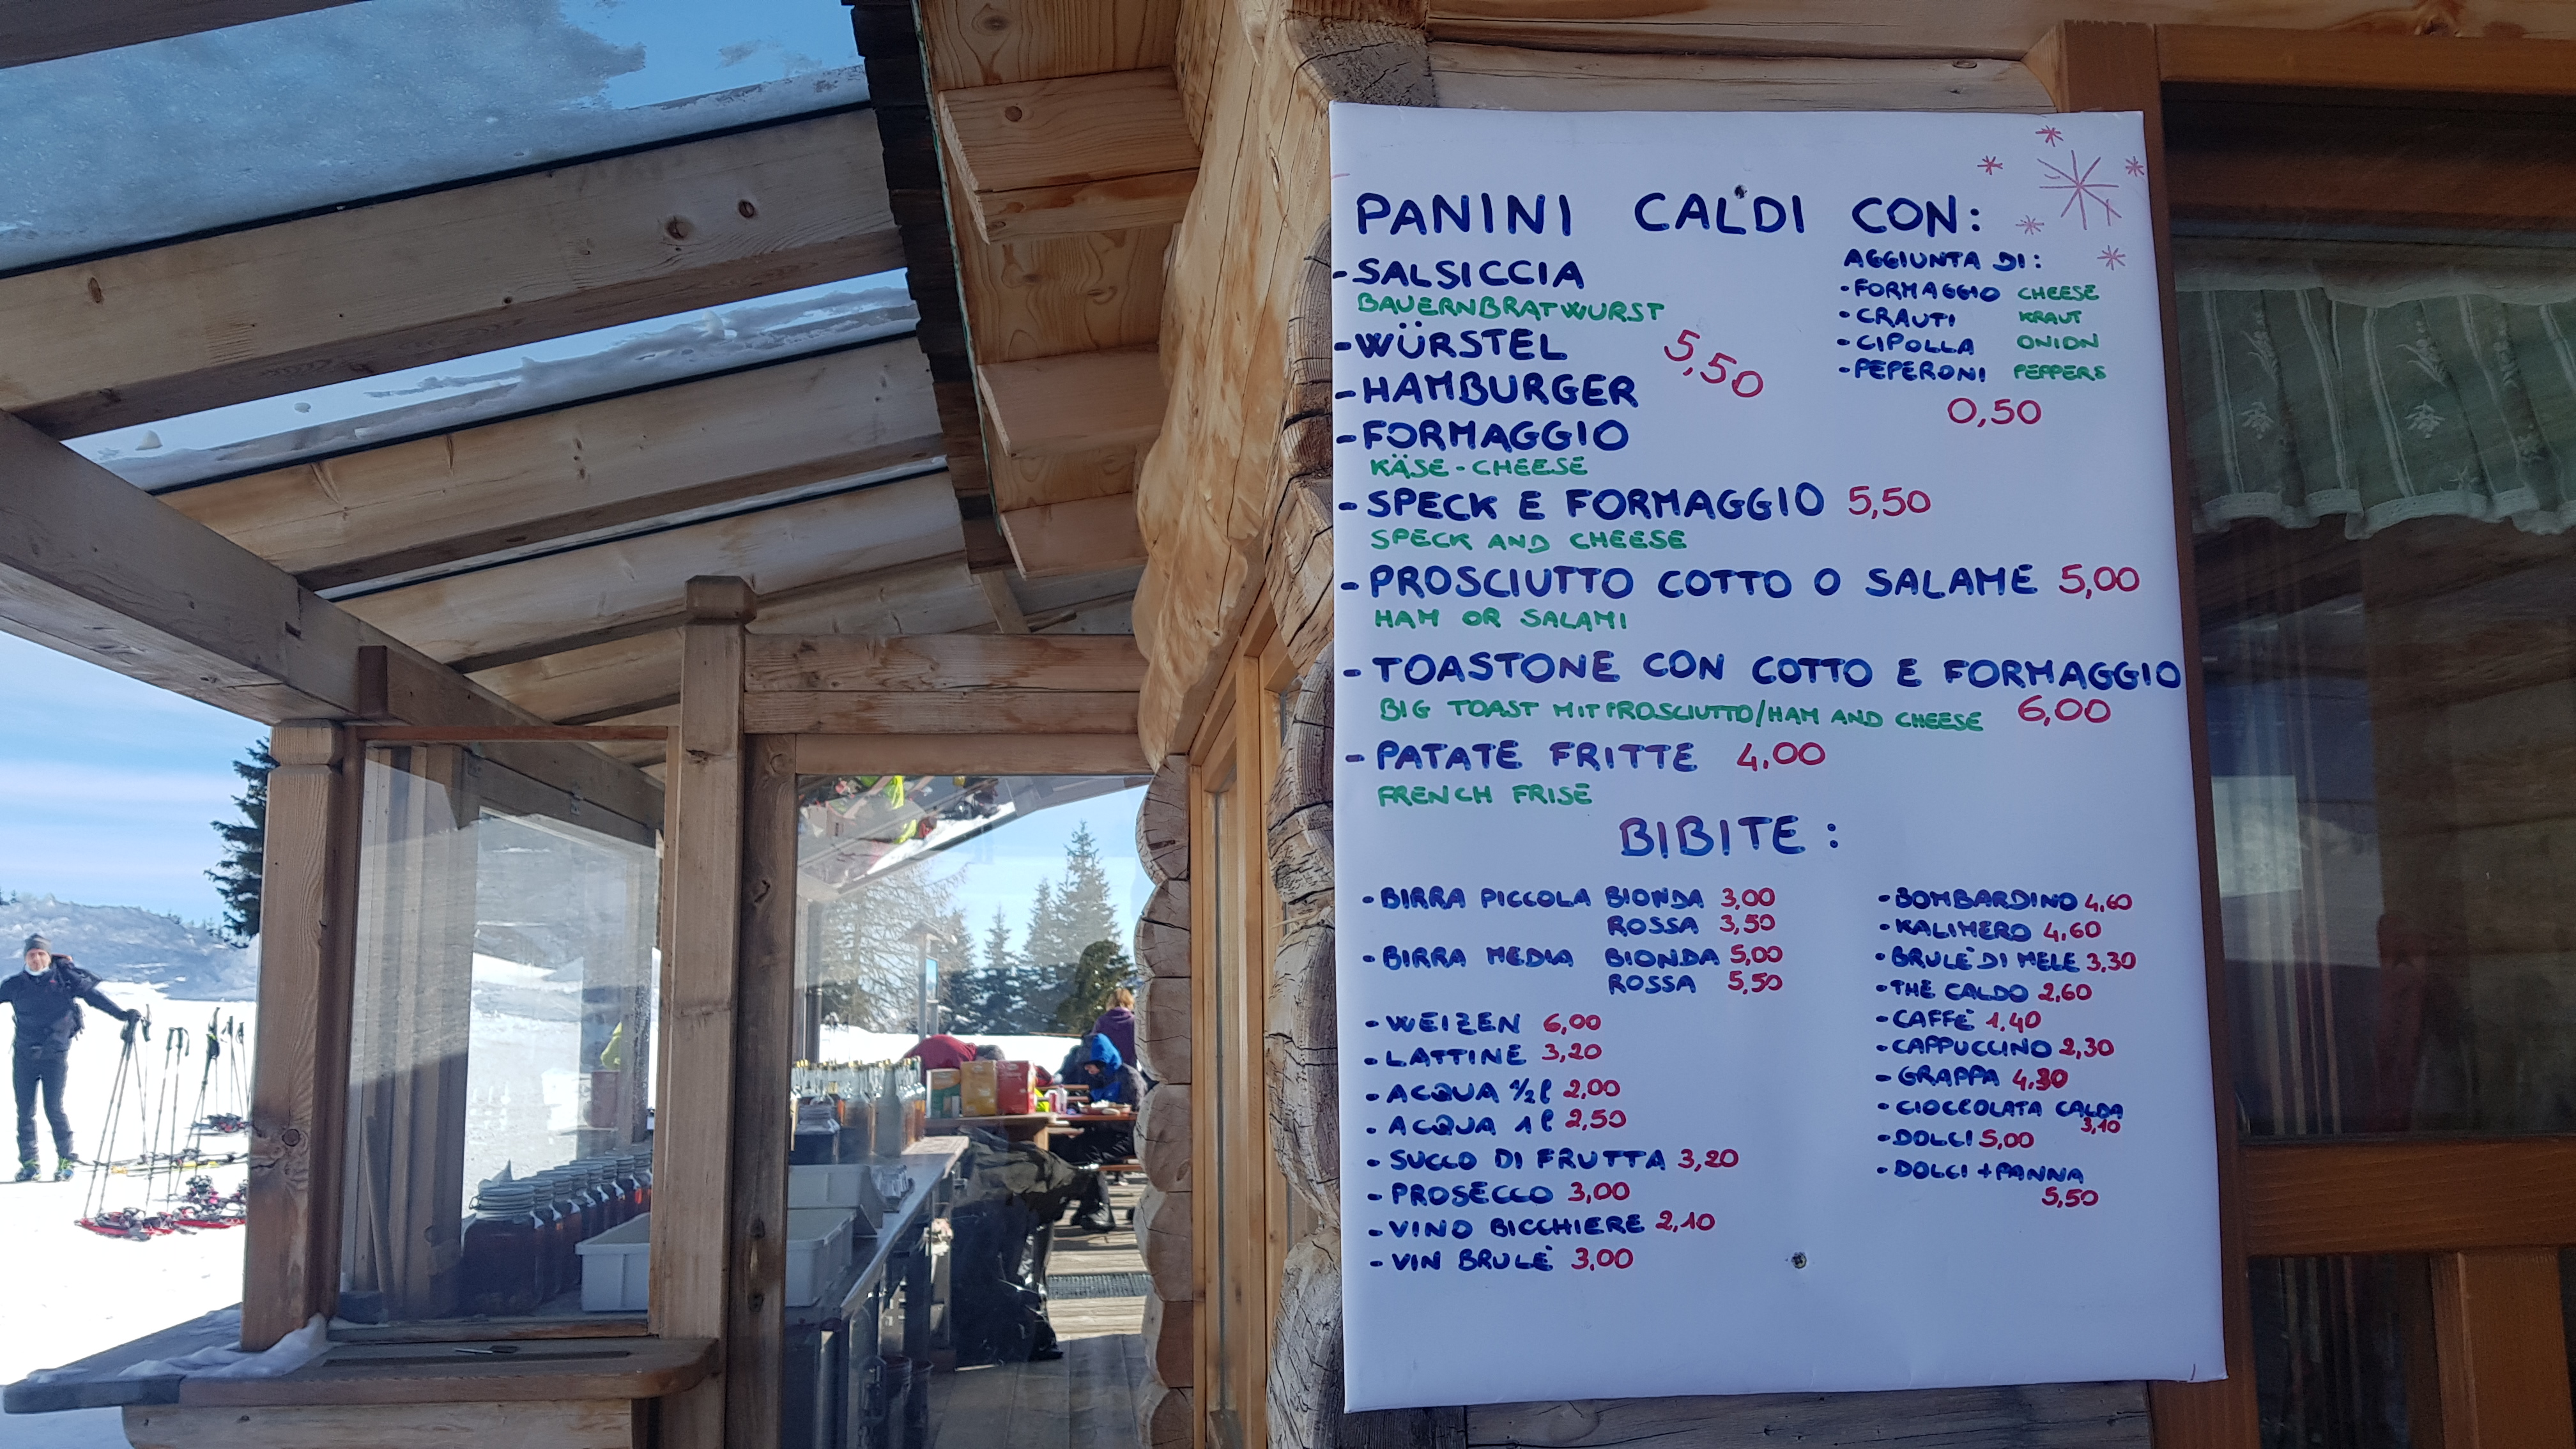 PANINI CALDI CON:
-SALSICCIA
BAUERNBRATWURST
-WÜRSTEL
-HAMBURGER
-FORMAGGIO
KÄSE-CHEESE
5,50
AGGIUNTA DI:
-FORMAGGIO CHEESE
-CRAUTI KRAUT
-CIPOLLA ONION
-PEPERONI PEPPERS
0,50
-SPECK E FORMAGGIO 5,50
SPECK AND CHEESE
-PROSCIUTTO COTTO O SALAME 5,00
HAM OR SALAMI
-TOASTONE CON COTTO E FORMAGGIO
BIG TOAST MIT PROSCIUTTO/HAM AND CHEESE 6,00
-PATATE FRITTE 4,00
FRENCH FRISE
BIBITE:
-BIRRA PICCOLA BIONDA 3,00
ROSSA 3,50
-BIRRA MEDIA BIONDA 5,00
ROSSA 5,50
-WEIZEN 6,00
-LATTINE 3,20
-ACQUA 1/2 l 2,00
-ACQUA 1 l 2,50
-SUCCO DI FRUTTA 3,20
-PROSECCO 3,00
-VINO BICCHIERE 2,10
-VIN BRULÈ 3,00
-BOMBARDINO 4,60
-KALIMERO 4,60
-BRULÈ DI MELE 3,30
-THE CALDO 2,60
-CAFFÈ 1,40
-CAPPUCCINO 2,30
-GRAPPA 4,30
-CIOCCOLATA CALDA
3,10
-DOLCI 5,00
-DOLCI + PANNA
5,50